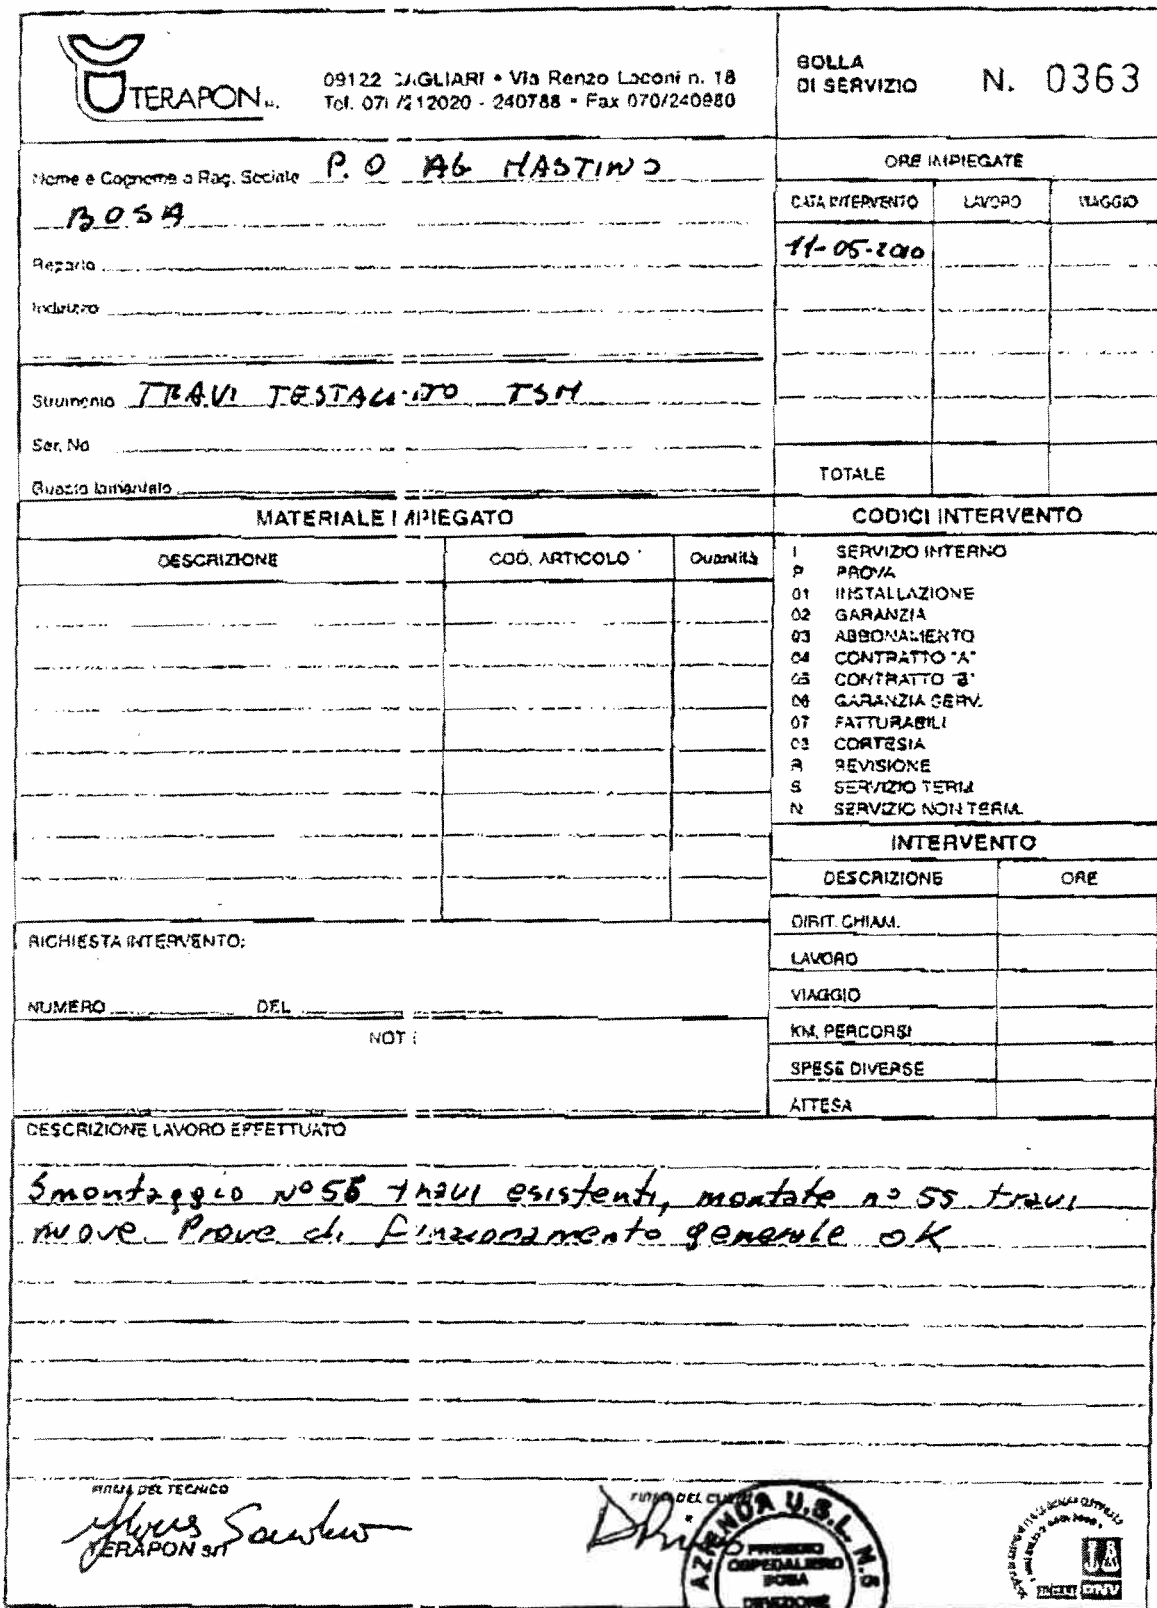 TERAPON
09122 CAGLIARI • Via Renzo Laconi n. 18
Tel. 070/212020 - 240788 • Fax 070/240980
BOLLA
DI SERVIZIO N. 0363
Nome e Cognome o Rag. Sociale P.O AG MASTINO
BOSA
Reparto
Indirizzo
ORE IMPIEGATE
DATA INTERVENTO LAVORO VIAGGIO
11-05-2010
Strumento TRAVI TESTALETTO TSM
Ser. No
Guasto lamentato
TOTALE
MATERIALE IMPIEGATO
DESCRIZIONE COD. ARTICOLO Quantità
CODICI INTERVENTO
I SERVIZIO INTERNO
P PROVA
01 INSTALLAZIONE
02 GARANZIA
03 ABBONAMENTO
04 CONTRATTO "A"
05 CONTRATTO "B"
06 GARANZIA SERV.
07 FATTURABILI
08 CORTESIA
R REVISIONE
S SERVIZIO TERM.
N SERVIZIO NON TERM.
INTERVENTO
DESCRIZIONE ORE
DIRIT. CHIAM.
LAVORO
VIAGGIO
KM. PERCORSI
SPESE DIVERSE
ATTESA
RICHIESTA INTERVENTO:
NUMERO DEL
NOTE
DESCRIZIONE LAVORO EFFETTUATO
Smontaggio N° 55 travi esistenti, montate n° 55 travi
nuove. Prove di funzionamento generale OK
FIRMA DEL TECNICO
TERAPON srl
FIRMA DEL CLIENTE
AZIENDA U.S.L. N.5
PRESIDIO
OSPEDALIERO
BOSA
DIREZIONE
DNV